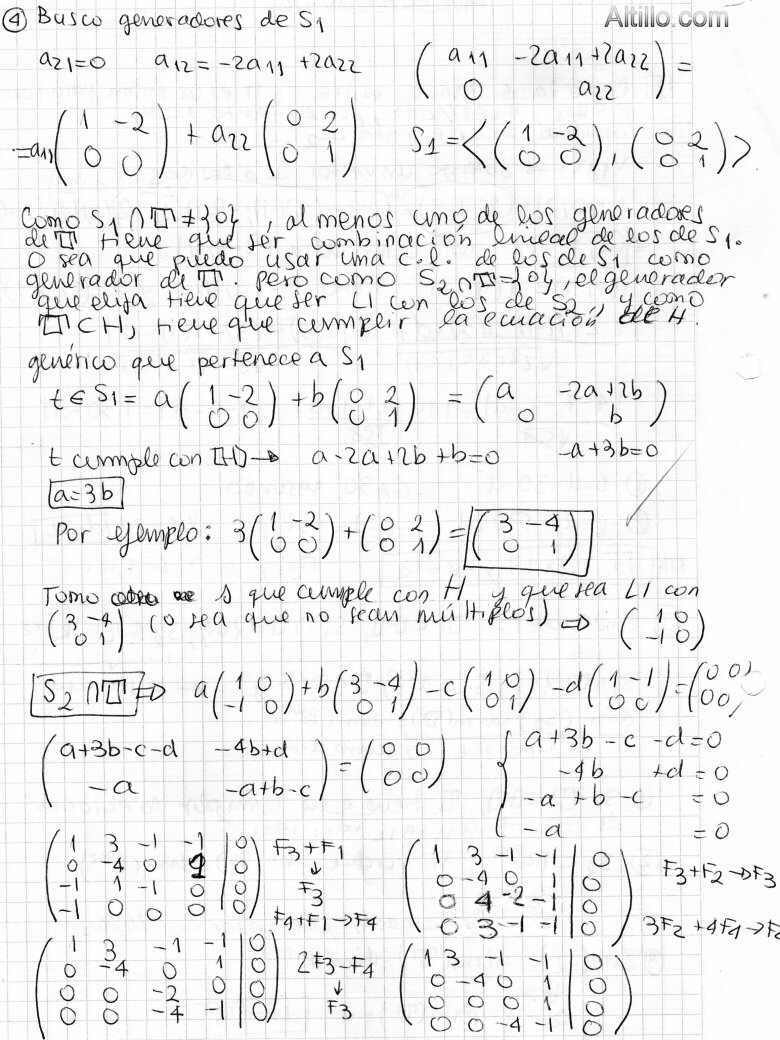 Altillo.com
④ Busco generadores de S1
a21=0   a12=-2a11+2a22   (a11 -2a11+2a22) =
(0 a22)
=a11(1 -2) + a22(0 2)   S1=<(1 -2), (0 2)>
(0 0) (0 1) (0 0) (0 1)
Como S1∩T≠{0}, al menos uno de los generadores
de T tiene que ser combinación lineal de los de S1.
O sea que puedo usar una c.l. de los de S1 como
generador de T. pero como S2∩T={0}, el generador
que elija tiene que ser LI con los de S2, y como
T⊂H, tiene que cumplir la ecuación de H.
genérico que pertenece a S1
t∈S1= a(1 -2) + b(0 2) = (a -2a+2b)
(0 0) (0 1) (0 b)
t cumple con H → a-2a+2b+b=0   -a+3b=0
a=3b
Por ejemplo: 3(1 -2)+(0 2)=(3 -4)
(0 0) (0 1) (0 1)
Tomo s que cumple con H y que sea LI con
(3 -4) (o sea que no sean múltiplos) ⇒ (1 0)
(0 1) (-1 0)
S2∩T ⇒ a(1 0)+b(3 -4)-c(1 0)-d(1 -1)=(0 0)
(-1 0) (0 1) (0 1) (0 0) (0 0)
(a+3b-c-d -4b+d)=(0 0)   { a+3b-c-d=0
(-a -a+b-c) (0 0)   -4b +d=0
-a+b-c =0
-a =0
(1 3 -1 -1 | 0) F3+F1   (1 3 -1 -1 | 0) F3+F2→F3
(0 -4 0 1 | 0) ↓   (0 -4 0 1 | 0)
(-1 1 -1 0 | 0) F3   (0 4 -2 -1 | 0)
(-1 0 0 0 | 0) F4+F1→F4   (0 3 -1 -1 | 0) 3F2+4F4→F
(1 3 -1 -1 | 0)   (1 3 -1 -1 | 0)
(0 -4 0 1 | 0) 2F3-F4   (0 -4 0 1 | 0)
(0 0 -2 0 | 0) ↓   (0 0 0 1 | 0)
(0 0 -4 -1 | 0) F3   (0 0 -4 -1 | 0)